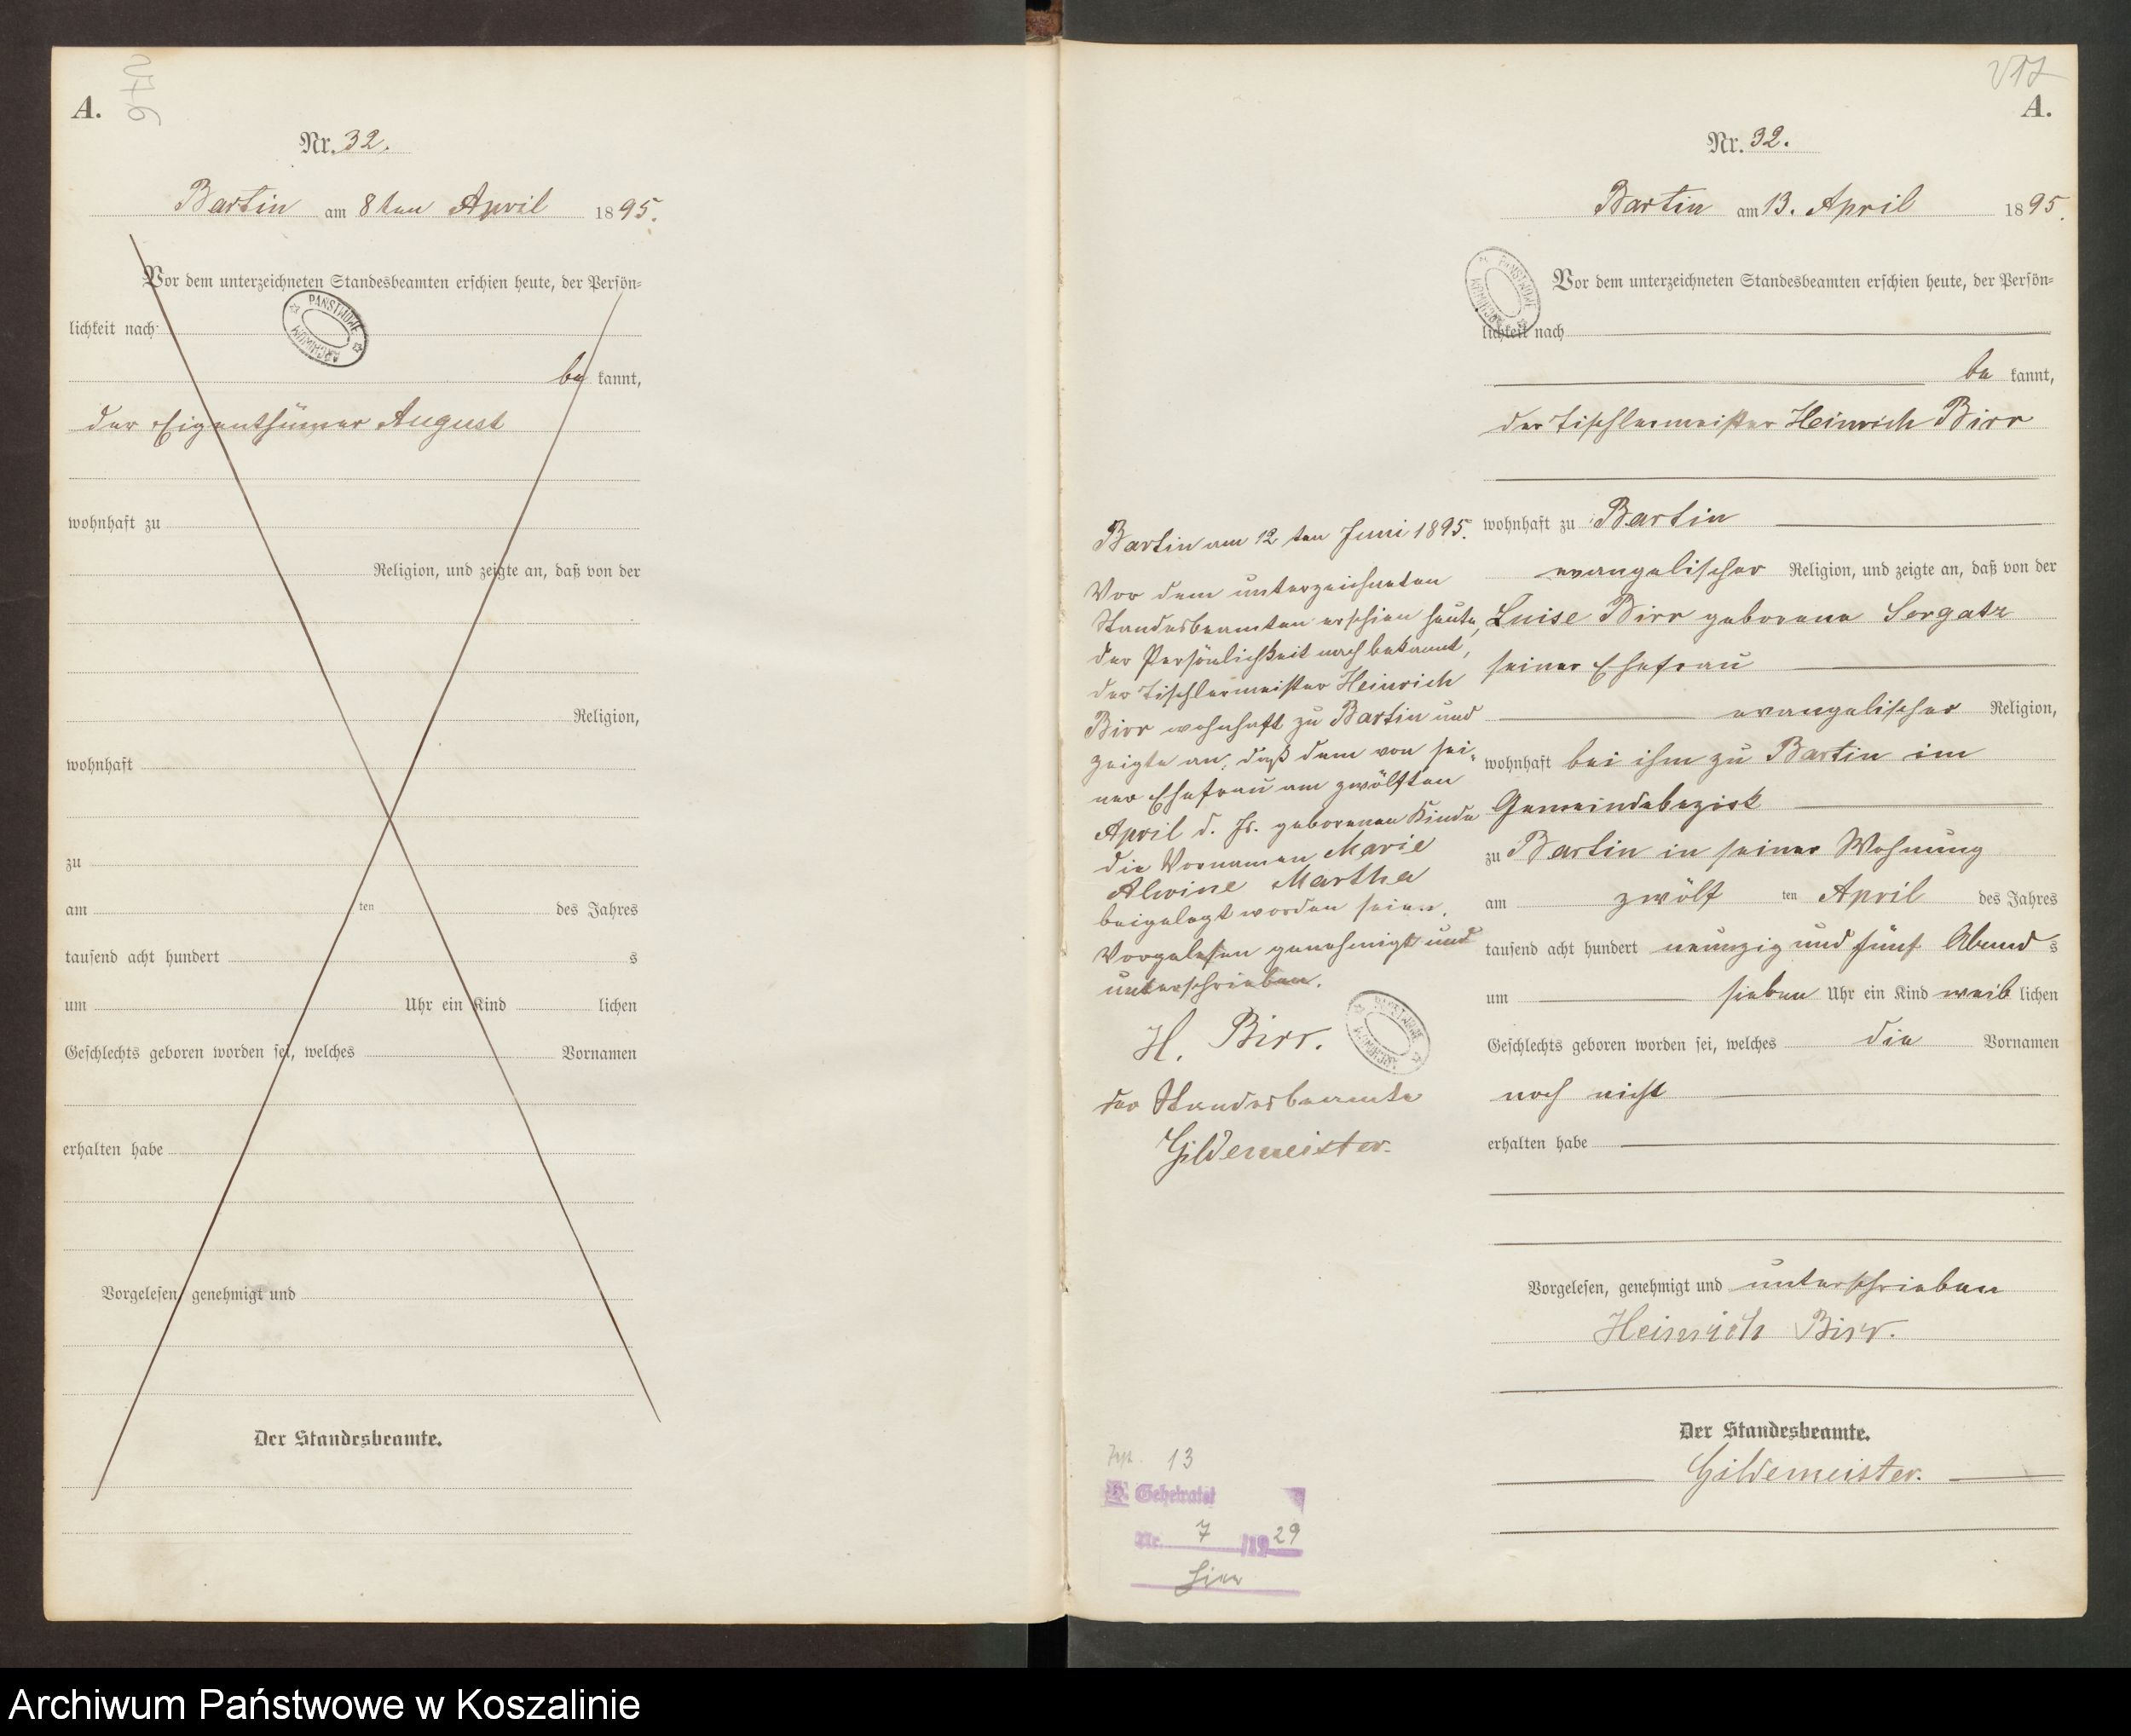 A.
Nr. 32.
Bartin am 8ten April 1895.
Vor dem unterzeichneten Standesbeamten erschien heute, der Persön-
lichkeit nach
PAŃSTWOWE ARCHIWUM
be kannt,
der Eigenthümer August
wohnhaft zu
Religion, und zeigte an, daß von der
Religion,
wohnhaft
zu
am ten des Jahres
tausend acht hundert s
um Uhr ein Kind lichen
Geschlechts geboren worden sei, welches Vornamen
erhalten habe
Vorgelesen, genehmigt und
Der Standesbeamte.
A.
Nr. 32.
Bartin am 13. April 1895.
PAŃSTWOWE ARCHIWUM
Vor dem unterzeichneten Standesbeamten erschien heute, der Persön-
lichkeit nach
be kannt,
der Tischlermeister Heinrich Birr
wohnhaft zu Bartin
evangelischer Religion, und zeigte an, daß von der
Luise Birr geborene Sorgatz
seiner Ehefrau
evangelischer Religion,
wohnhaft bei ihm zu Bartin im
Gemeindebezirk
zu Bartin in seiner Wohnung
am zwölf ten April des Jahres
tausend acht hundert neunzig und fünf Abend s
um sieben Uhr ein Kind weib lichen
Geschlechts geboren worden sei, welches die Vornamen
noch nicht
erhalten habe
Vorgelesen, genehmigt und unterschrieben
Heinrich Birr.
Der Standesbeamte.
Gildemeister.
Bartin am 12ten Juni 1895.
Vor dem unterzeichneten
Standesbeamten erschien heute,
der Persönlichkeit nach bekannt,
der Tischlermeister Heinrich
Birr wohnhaft zu Bartin und
zeigte an, daß dem von sei-
ner Ehefrau am zwölften
April d. Js. geborenen Kinde
die Vornamen Marie
Alwine Martha
beigelegt worden seien.
Vorgelesen genehmigt und
unterschrieben.
H. Birr.
PAŃSTWOWE ARCHIWUM
der Standesbeamte
Gildemeister.
13
Geheiratet
Nr. 7 /1929
Archiwum Państwowe w Koszalinie